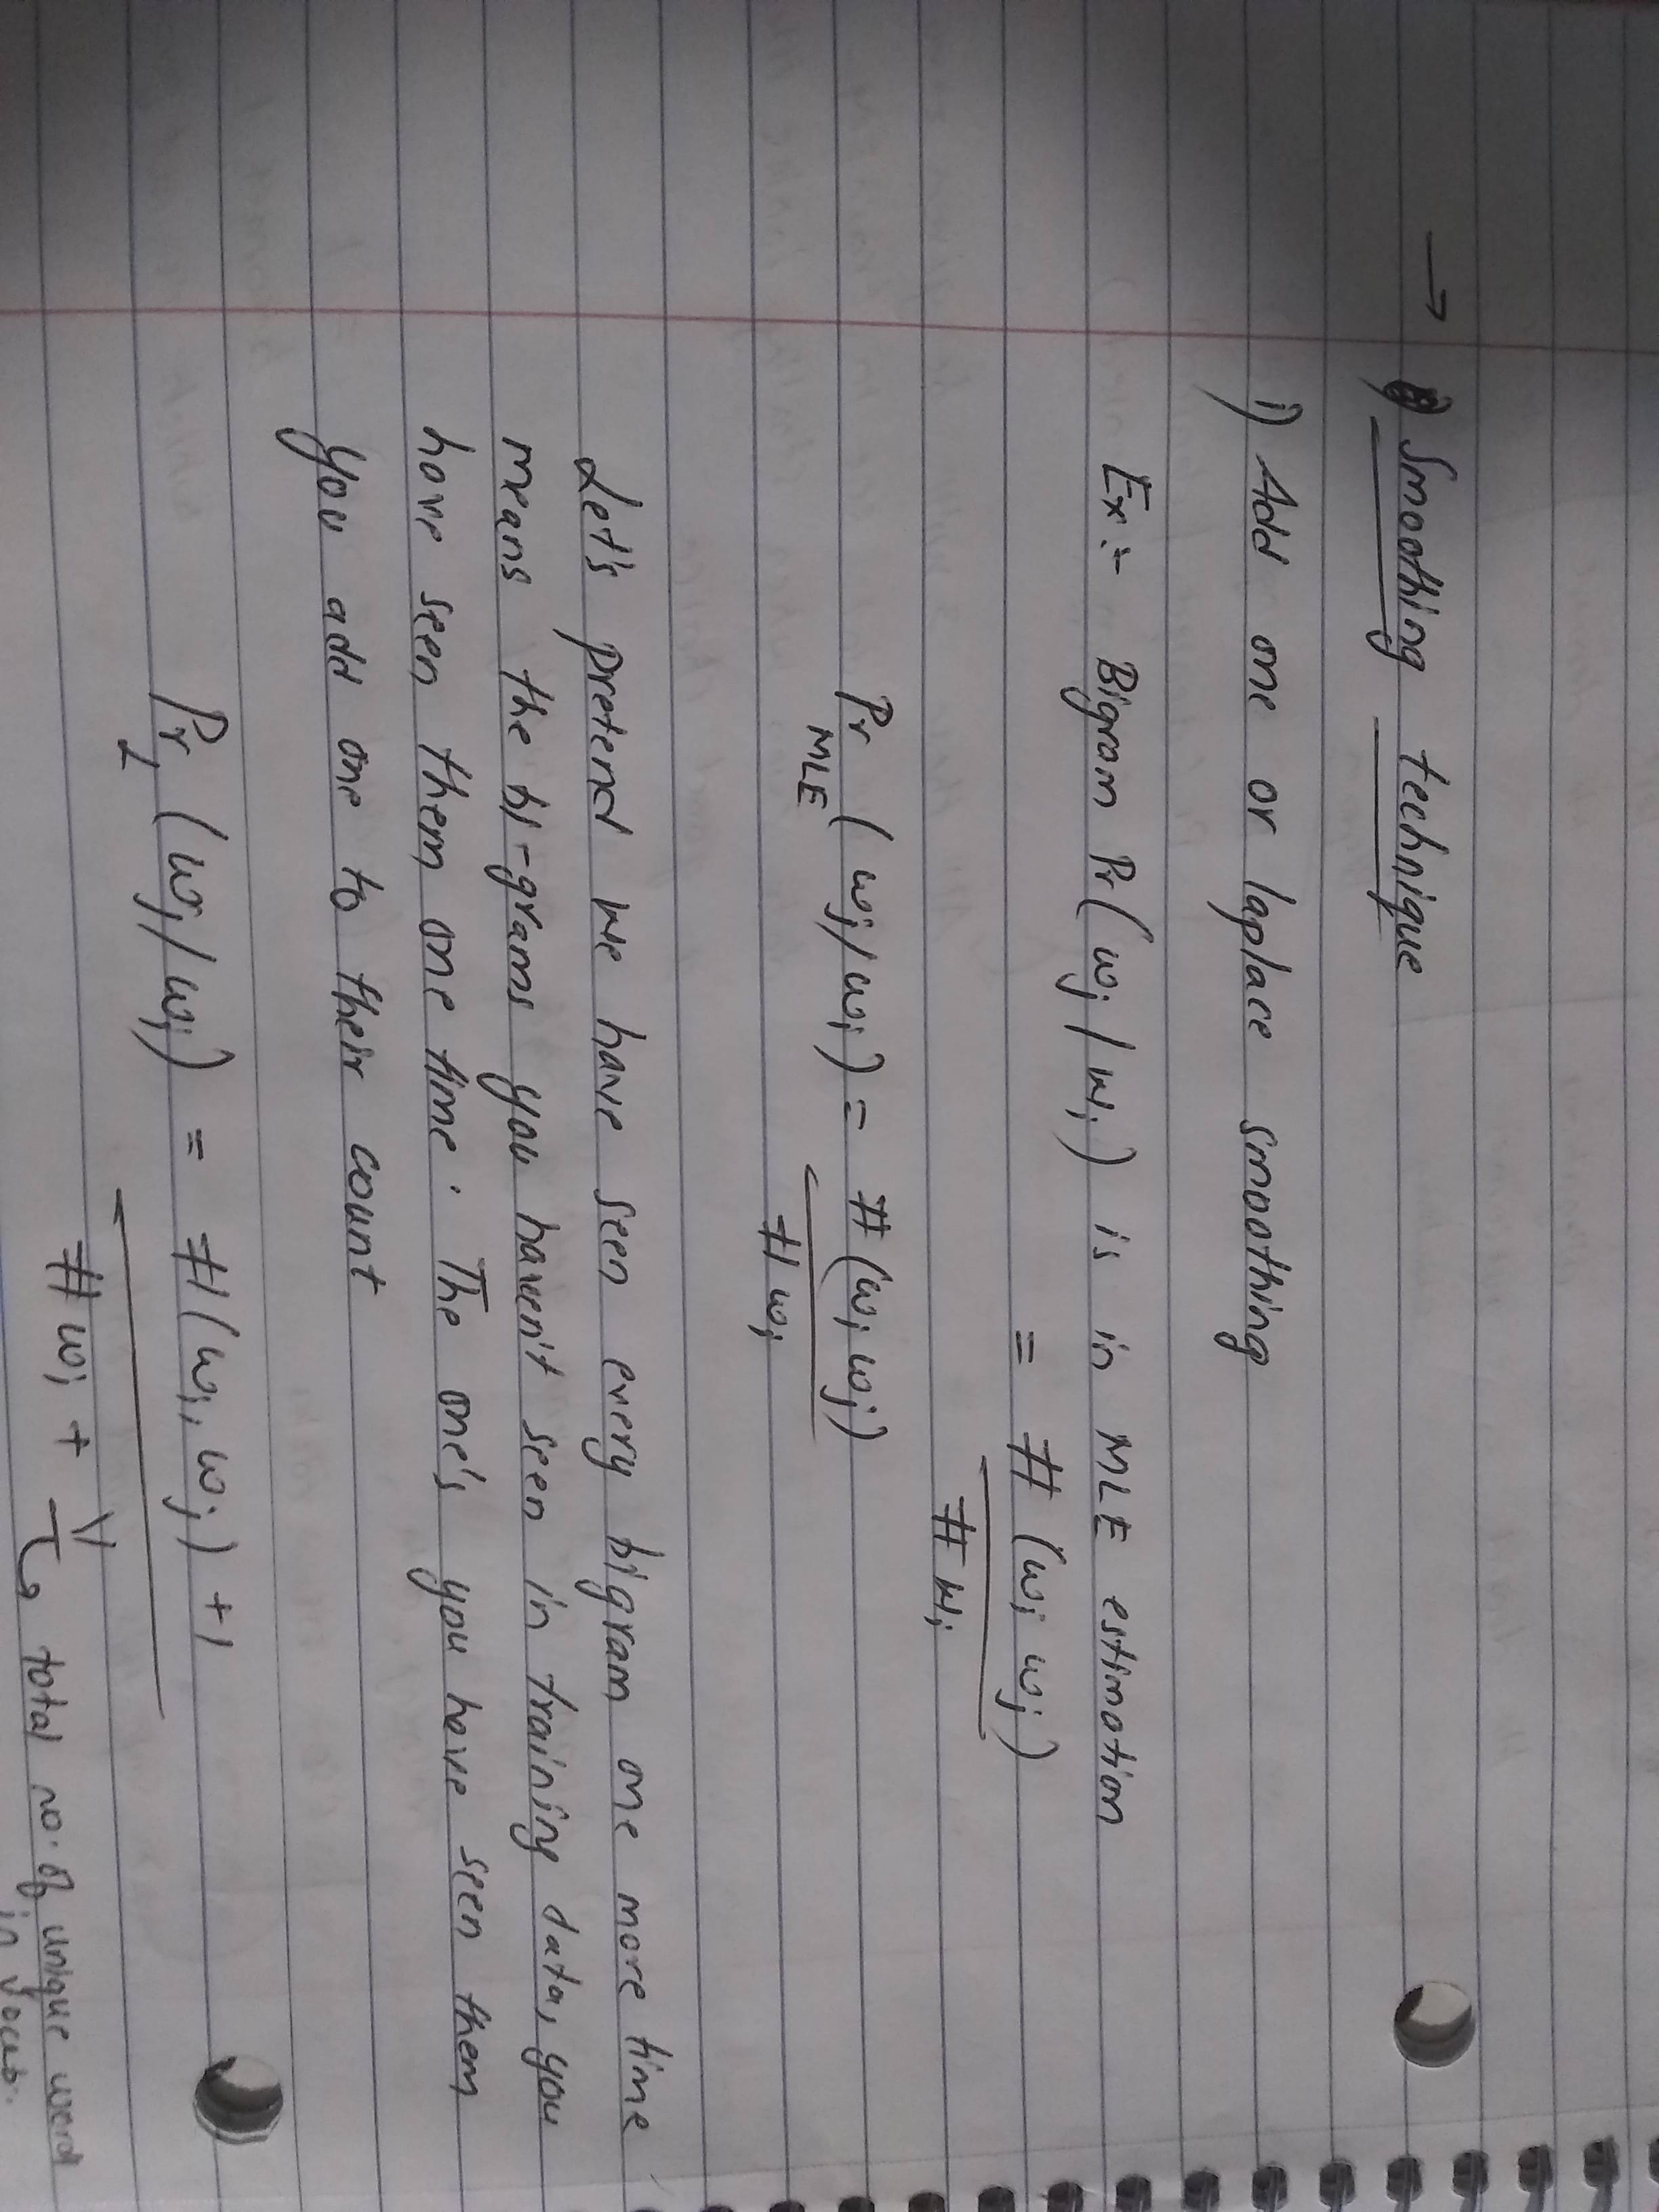 → Smoothing technique
i) Add one or laplace smoothing
Ex:- Bigram Pr(wj/wi) is in MLE estimation
= #(wi wj)
# wi
Pr MLE (wj/wi) = #(wi wj)
# wi
Let's pretend we have seen every bigram one more time
means the bi-grams you haven't seen in training data, you
have seen them one time. The one's you have seen them
you add one to their count
PrL (wj/wi) = #(wi, wj) +1
# wi + V → total no. of unique word
in vocab.